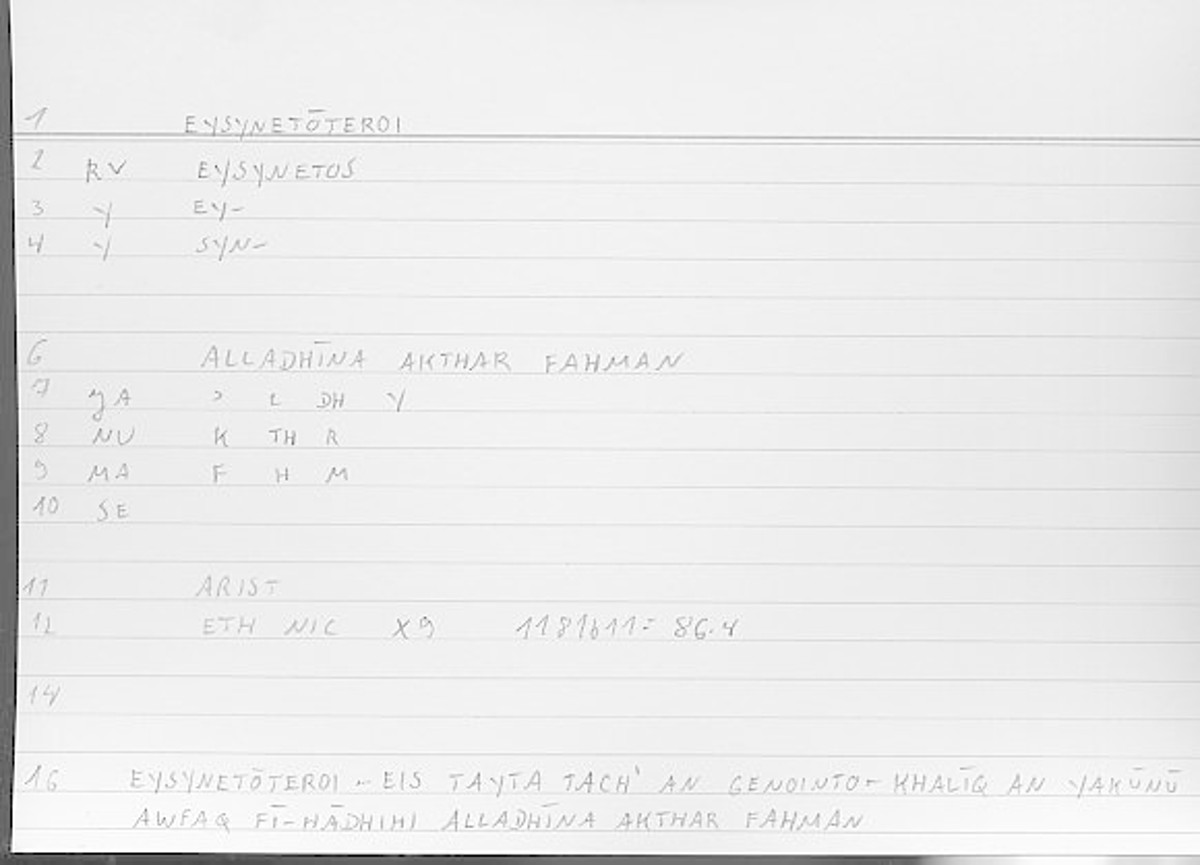 1 EYSYNETŌTEROI
2 RV EYSYNETOS
3 Y EY-
4 Y SYN-
6 ALLADHĪNA AKTHAR FAHMAN
7 YA ʾ L DH Y
8 NU K TH R
9 MA F H M
10 SE
11 ARIST
12 ETH NIC X9 1181b11= 86.4
14
16 EYSYNETŌTEROI - EIS TAYTA TACH' AN GENOINTO - KHALĪQ AN YAKŪNŪ
AWFAQ FĪ-HĀDHIHI ALLADHĪNA AKTHAR FAHMAN